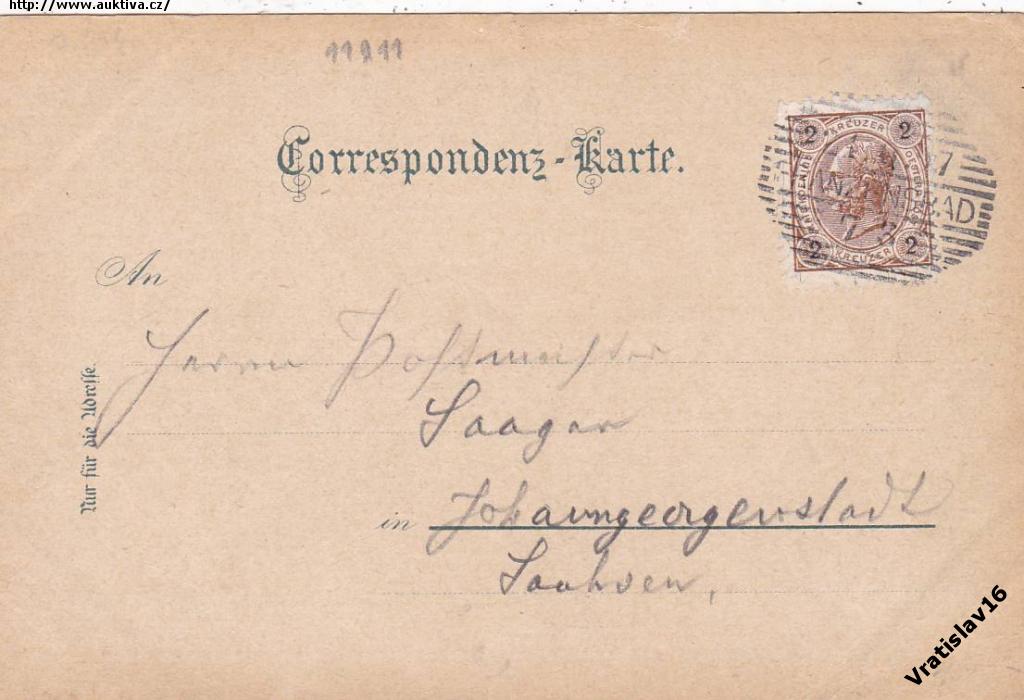 http://www.auktiva.cz/
11911
Correspondenz-Karte.
2 KREUZER 2
2 KREUZER 2
An
Herrn Postmeister
Saager
in Johanngeorgenstadt
Sachsen,
Nur für die Adresse.
Vratislav16